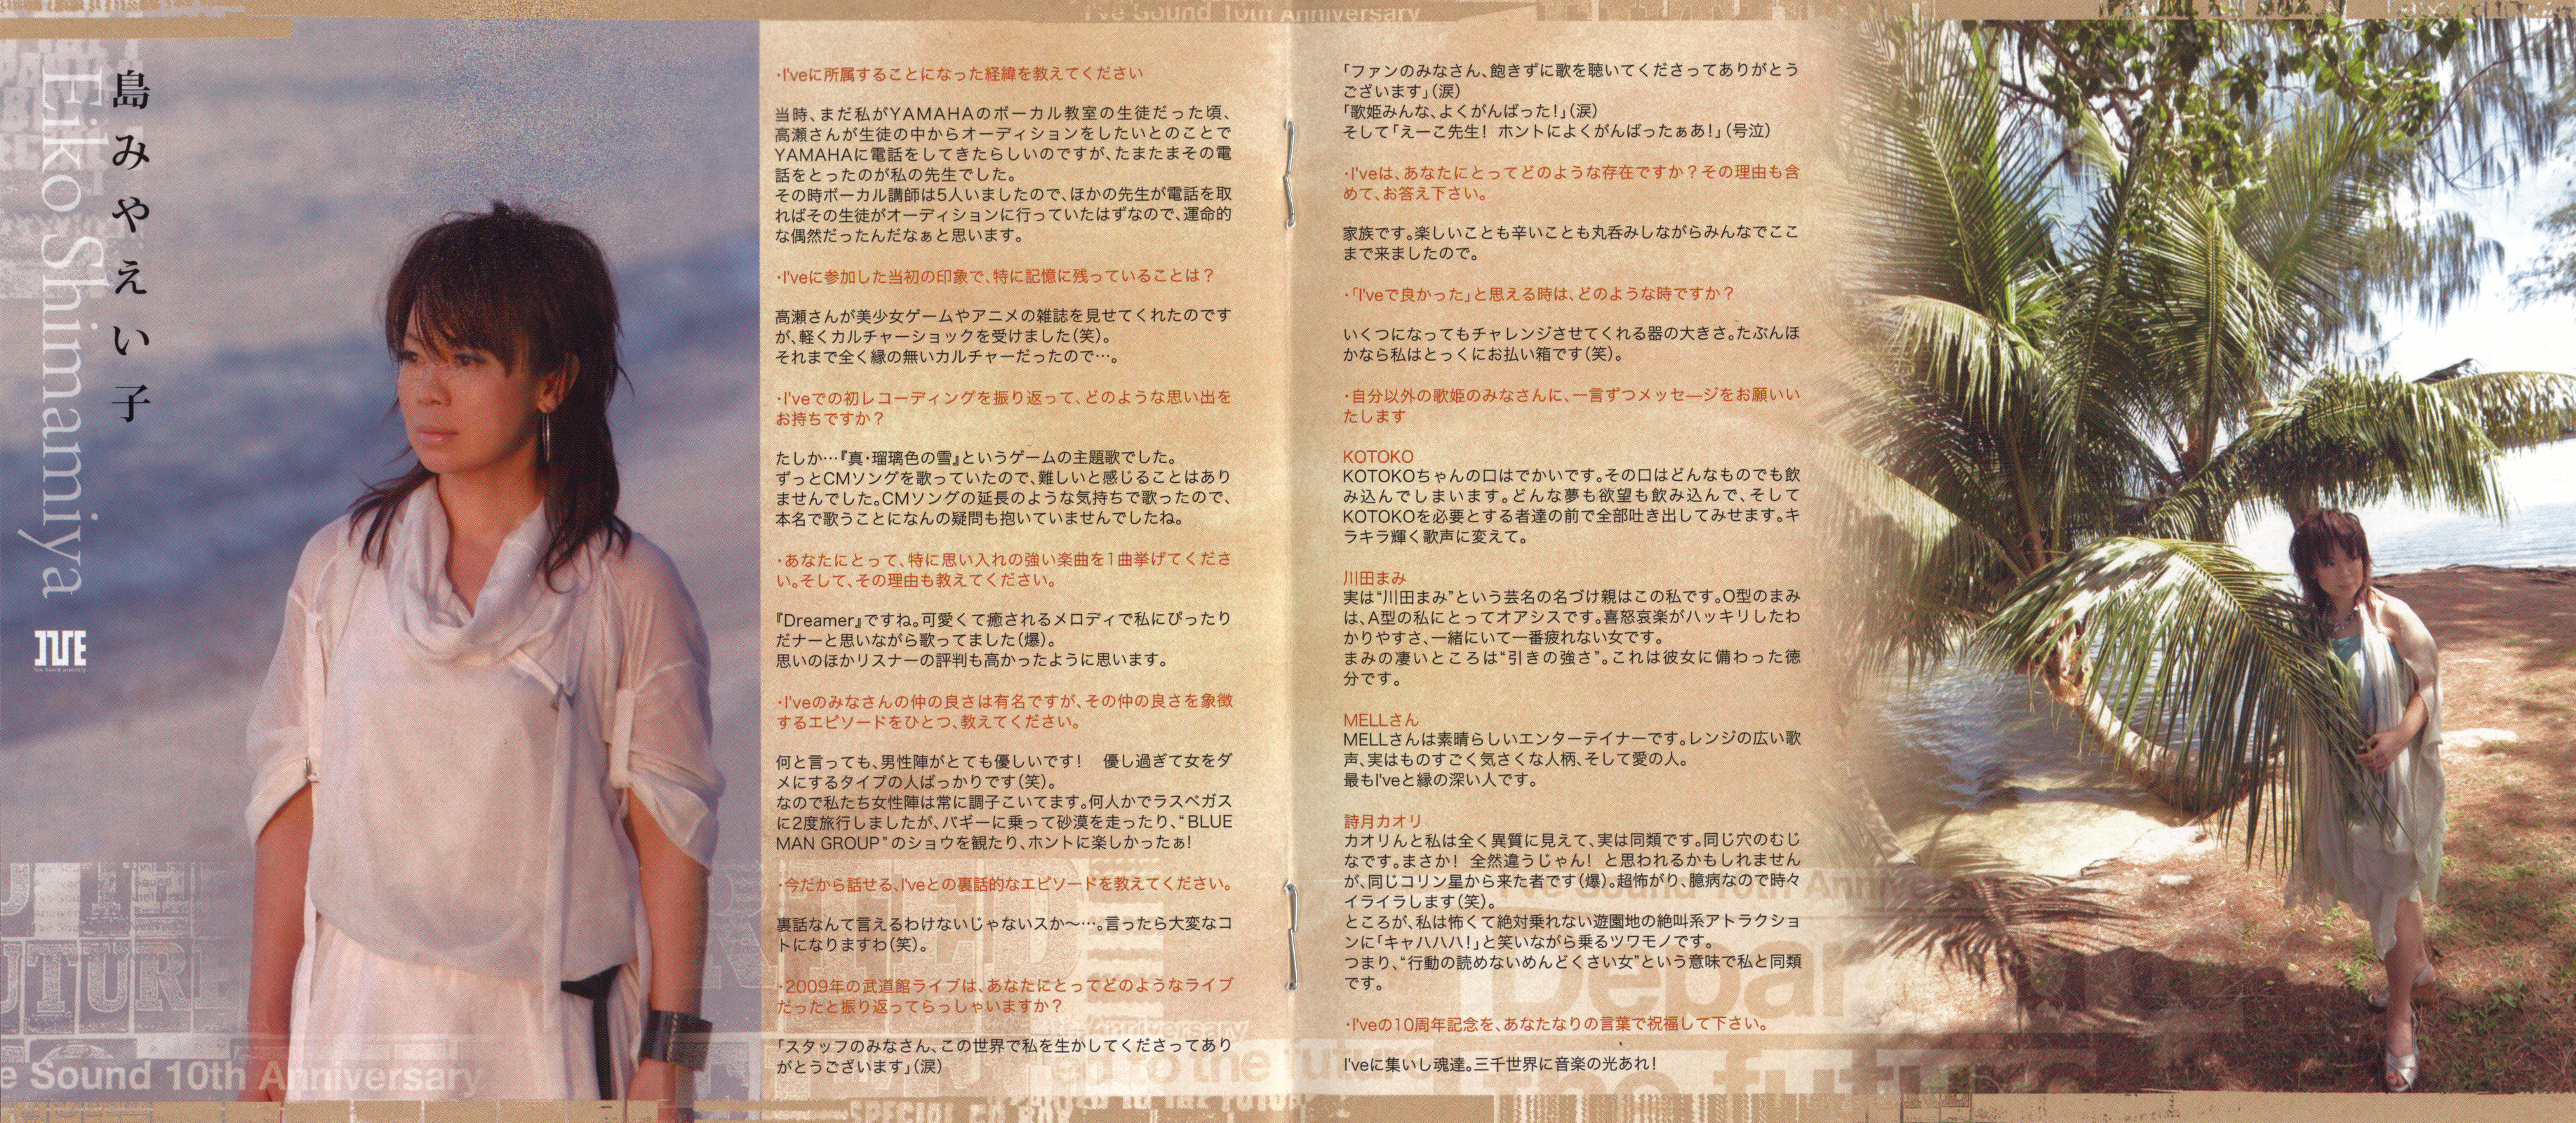 I've Sound 10th Anniversary
島みやえい子
Eiko Shimamiya
I've
e Sound 10th Anniversary
・I'veに所属することになった経緯を教えてください
当時、まだ私がYAMAHAのボーカル教室の生徒だった頃、
高瀬さんが生徒の中からオーディションをしたいとのことで
YAMAHAに電話をしてきたらしいのですが、たまたまその電
話をとったのが私の先生でした。
その時ボーカル講師は5人いましたので、ほかの先生が電話を取
ればその生徒がオーディションに行っていたはずなので、運命的
な偶然だったんだなぁと思います。
・I'veに参加した当初の印象で、特に記憶に残っていることは?
高瀬さんが美少女ゲームやアニメの雑誌を見せてくれたのです
が、軽くカルチャーショックを受けました(笑)。
それまで全く縁の無いカルチャーだったので…。
・I'veでの初レコーディングを振り返って、どのような思い出を
お持ちですか?
たしか…『真・瑠璃色の雪』というゲームの主題歌でした。
ずっとCMソングを歌っていたので、難しいと感じることはあり
ませんでした。CMソングの延長のような気持ちで歌ったので、
本名で歌うことになんの疑問も抱いていませんでしたね。
・あなたにとって、特に思い入れの強い楽曲を1曲挙げてくださ
い。そして、その理由も教えてください。
『Dreamer』ですね。可愛くて癒されるメロディで私にぴったり
だナーと思いながら歌ってました(爆)。
思いのほかリスナーの評判も高かったように思います。
・I'veのみなさんの仲の良さは有名ですが、その仲の良さを象徴
するエピソードをひとつ、教えてください。
何と言っても、男性陣がとても優しいです! 優し過ぎて女をダ
メにするタイプの人ばっかりです(笑)。
なので私たち女性陣は常に調子こいてます。何人かでラスベガス
に2度旅行しましたが、バギーに乗って砂漠を走ったり、“BLUE
MAN GROUP”のショウを観たり、ホントに楽しかったぁ!
・今だから話せる、I'veとの裏話的なエピソードを教えてください。
裏話なんて言えるわけないじゃないスか〜…。言ったら大変なコ
トになりますわ(笑)。
・2009年の武道館ライブは、あなたにとってどのようなライブ
だったと振り返ってらっしゃいますか?
「スタッフのみなさん、この世界で私を生かしてくださってあり
がとうございます」(涙)
「ファンのみなさん、飽きずに歌を聴いてくださってありがとう
ございます」(涙)
「歌姫みんな、よくがんばった!」(涙)
そして「えーこ先生! ホントによくがんばったぁあ!」(号泣)
・I'veは、あなたにとってどのような存在ですか?その理由も含
めて、お答え下さい。
家族です。楽しいことも辛いことも丸呑みしながらみんなでここ
まで来ましたので。
・「I'veで良かった」と思える時は、どのような時ですか?
いくつになってもチャレンジさせてくれる器の大きさ。たぶんほ
かなら私はとっくにお払い箱です(笑)。
・自分以外の歌姫のみなさんに、一言ずつメッセージをお願いい
たします
KOTOKO
KOTOKOちゃんの口はでかいです。その口はどんなものでも飲
み込んでしまいます。どんな夢も欲望も飲み込んで、そして
KOTOKOを必要とする者達の前で全部吐き出してみせます。キ
ラキラ輝く歌声に変えて。
川田まみ
実は“川田まみ”という芸名の名づけ親はこの私です。O型のまみ
は、A型の私にとってオアシスです。喜怒哀楽がハッキリしたわ
かりやすさ、一緒にいて一番疲れない女です。
まみの凄いところは“引きの強さ”。これは彼女に備わった徳
分です。
MELLさん
MELLさんは素晴らしいエンターテイナーです。レンジの広い歌
声、実はものすごく気さくな人柄、そして愛の人。
最もI'veと縁の深い人です。
詩月カオリ
カオリんと私は全く異質に見えて、実は同類です。同じ穴のむじ
なです。まさか! 全然違うじゃん! と思われるかもしれません
が、同じコリン星から来た者です(爆)。超怖がり、臆病なので時々
イライラします(笑)。
ところが、私は怖くて絶対乗れない遊園地の絶叫系アトラクショ
ンに「キャハハハ!」と笑いながら乗るツワモノです。
つまり、“行動の読めないめんどくさい女”という意味で私と同類
です。
・I'veの10周年記念を、あなたなりの言葉で祝福して下さい。
I'veに集いし魂達。三千世界に音楽の光あれ!